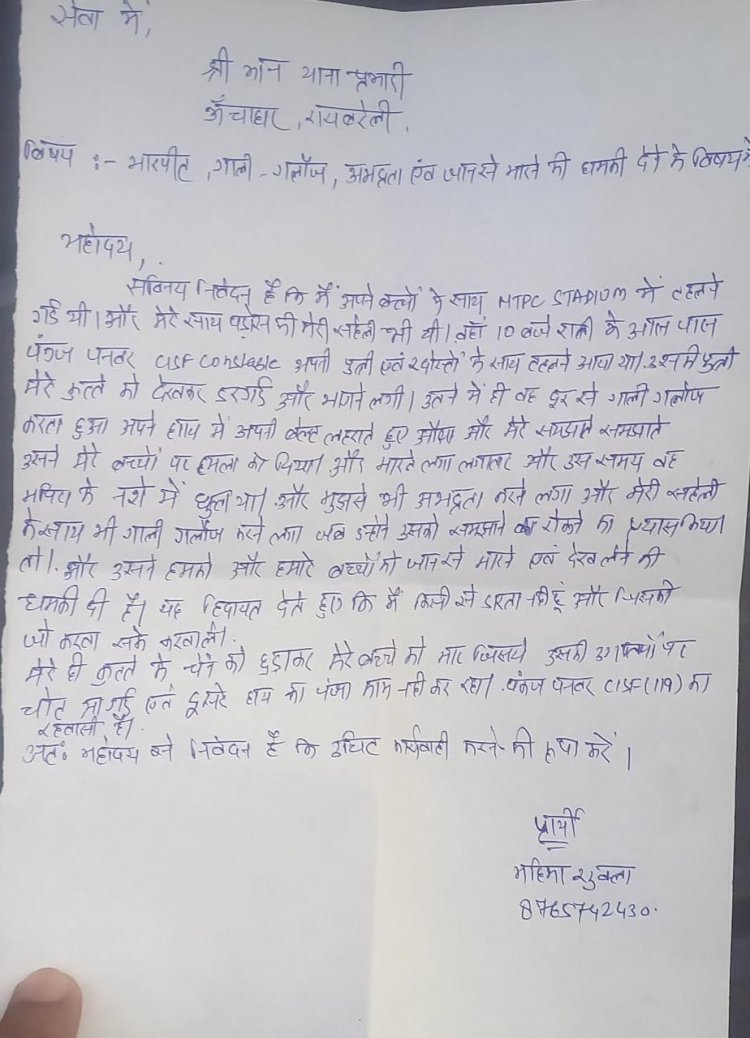 सेवा में,
श्री मान थाना प्रभारी
ऊँचाहार, रायबरेली.
विषय :- मारपीट, गाली-गलौज, अभद्रता एवं जान से मारने की धमकी देने के विषय में
महोदय,
सविनय निवेदन है कि मैं अपने बच्चों के साथ NTPC STADIUM में टहलने
गई थी। और मेरे साथ पड़ोस की मेरी सहेली भी थी। वहाँ 10 बजे रात्री के आस पास
पंकज पनवर CISF Constable अपनी पुत्री एवं 2 दोस्तों के साथ टहलने आया था। उसमें पुत्री
मेरे कुत्ते को देखकर डर गई और भागने लगी। इतने में ही वह दूर से गाली गलौज
करता हुआ अपने हाथ में अपनी बेल्ट लहराते हुए आया और मेरे समझाते समझाते
उसने मेरे बच्चों पर हमला कर दिया। और मारने लगा लगातार और उस समय वह
मदिरा के नशे में धुत्त था। और मुझसे भी अभद्रता करने लगा और मेरी सहेली
के साथ भी गाली गलौज करने लगा जब उन्होंने उसको समझाने का रोकने का प्रयास किया
तो। और उसने हमको और हमारे बच्चों को जान से मारने एवं देख लेने की
धमकी दी है। यह हिदायत देते हुए कि मैं किसी से डरता नहीं हूं और जिसको
जो करना सके करवाले।
मेरे ही कुत्ते के चेन को छुड़ाकर मेरे बच्चे को मारा जिससे उसकी उंगलियों पर
चोट आ गई एवं दूसरे हाथ का पंजा काम नहीं कर रहा। पंकज पनवर CISF (119) का
रहवासी है।
अतः महोदय से निवेदन है कि उचित कार्यवाही करने की कृपा करें।
प्रार्थी
महिमा शुक्ला
8765742430.